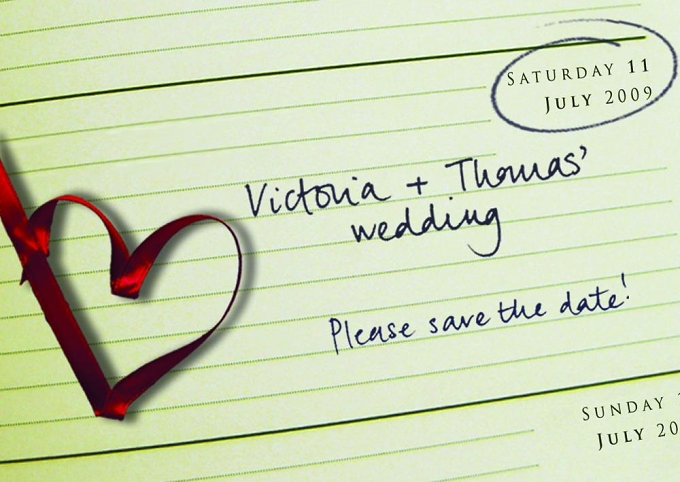 SATURDAY 11
JULY 2009
Victoria + Thomas'
wedding
Please save the date!
SUNDAY
JULY 20